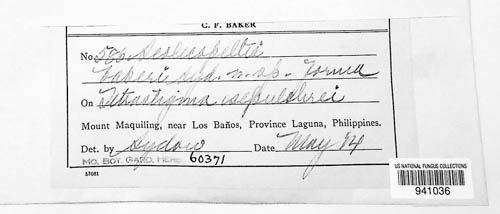 C. F. BAKER
No. 586.
bakeri Syd. n. sp. Forma
On Tetrastigma
Mount Maquiling, near Los Baños, Province Laguna, Philippines.
Det. by Sydow Date May 14
MO. BOT. GARD. HERB. 60371
US NATIONAL FUNGUS COLLECTIONS
941036